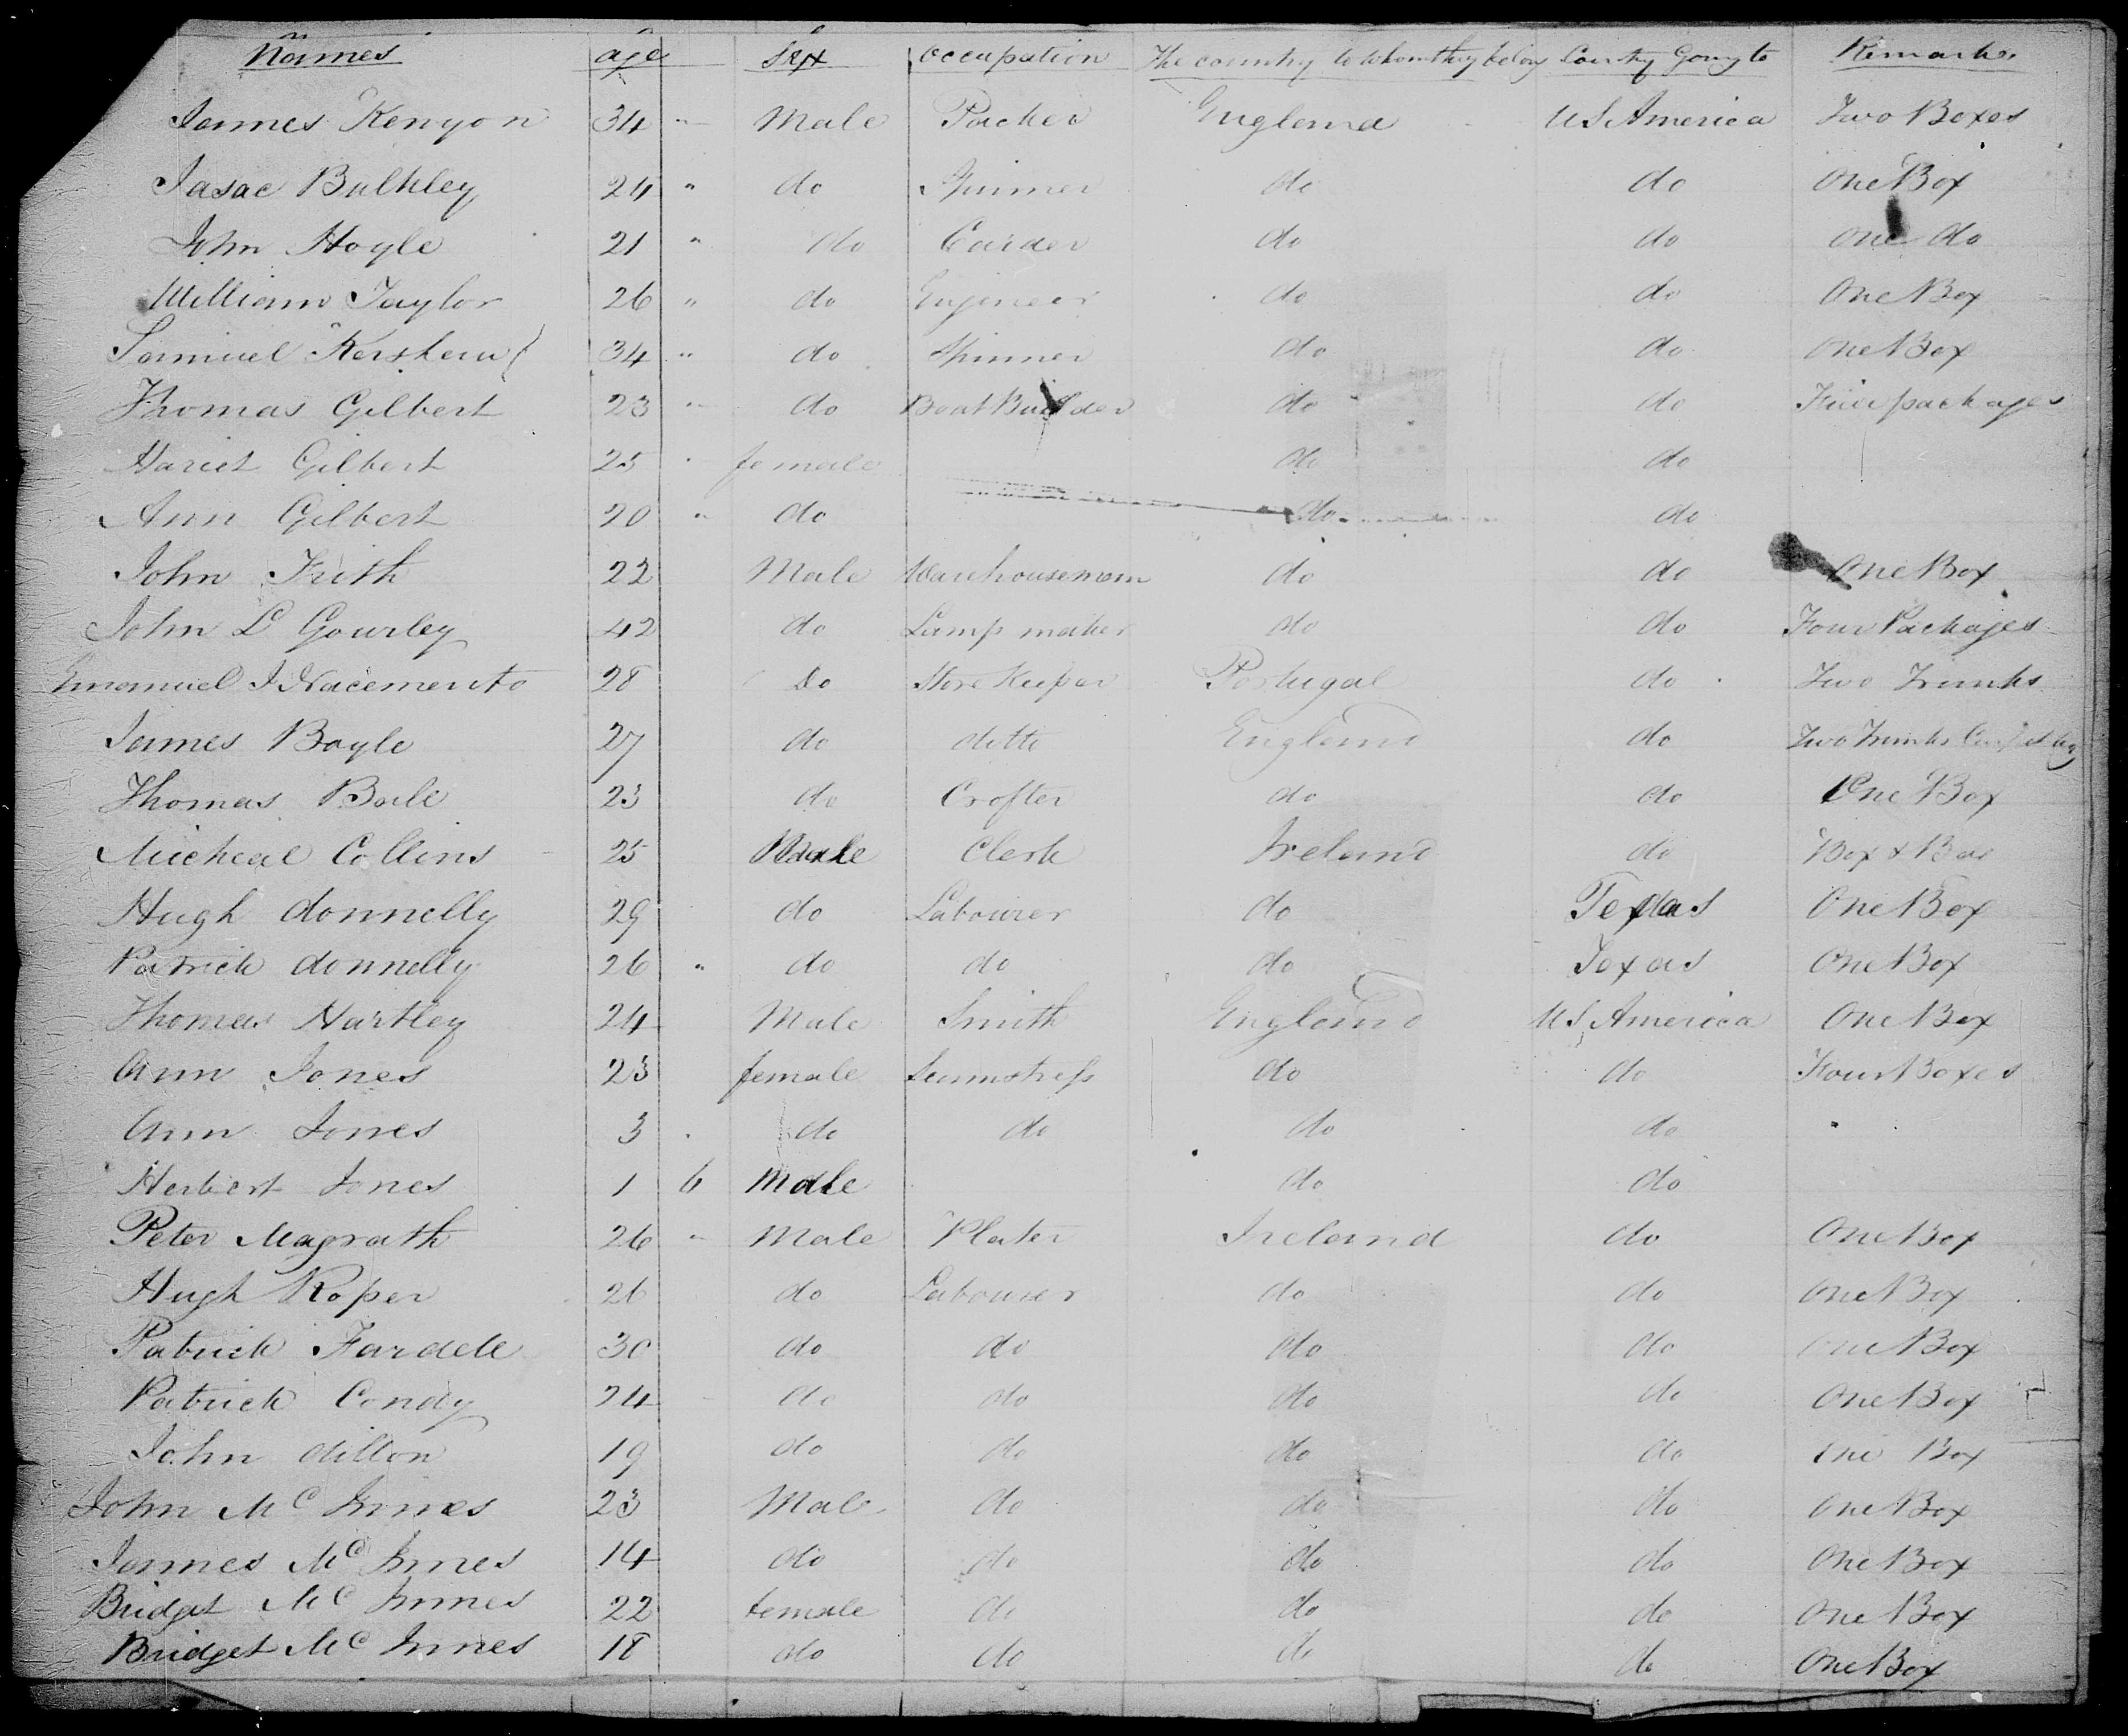 Names age Sex Occupation The country to whom they belong Country Going to Remarks
James Kenyon 34 " Male Packer England US America Two Boxes
Isaac Bulkley 24 " do Spinner do do One Box
John Hoyle 21 " do Carder do do One do
William Taylor 26 " do Engineer do do One Box
Samuel Kershaw 34 " do Spinner do do One Box
Thomas Gilbert 23 " do Boat Builder do do Five packages
Hariet Gilbert 25 " female do do
Ann Gilbert 20 " do do do
John Frith 22 Male Warehouseman do do One Box
John L Gourley 42 do Lamp maker do do Four Packages
Emanuel I Nacemento 28 do Store Keeper Portugal do Two Trunks
James Boyle 27 do ditto England do Two Trunks
Thomas Baile 23 do Crofter do do One Box
Micheal Collins 25 Male Clerk Ireland do Box &
Hugh donnelly 29 do Labourer do Texas One Box
Patrick donnelly 26 " do do do Texas One Box
Thomas Hartley 24 Male Smith England US America One Box
Ann Jones 23 female Seamstress do do Four Boxes
Ann Jones 3 " do do do do "
Herbert Jones 1 6 Male do do
Peter Magrath 26 " Male Plater Ireland do One Box
Hugh Roper 26 do Labourer do do One Box
Patrick Fardele 30 do do do do One Box
Patrick Condy 24 do do do do One Box
John dillon 19 do do do do One Box
John Mc Innes 23 Male do do do One Box
James Mc Innes 14 do do do do One Box
Bridget Mc Innes 22 female do do do One Box
Bridget Mc Innes 18 do do do do One Box